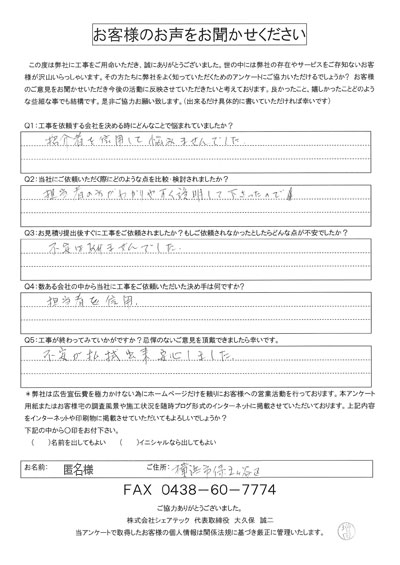 お客様のお声をお聞かせください
この度は弊社に工事をご用命いただき、誠にありがとうございました。世の中には弊社の存在やサービスをご存知ないお客
様が沢山いらっしゃいます。その方たちに弊社をよく知っていただくためのアンケートにご協力いただけるでしょうか? お客様
のご意見をお聞かせいただき今後の活動に反映させていただきたいと考えております。良かったこと、嬉しかったことどのよう
な些細な事でも結構です。是非ご協力お願い致します。(出来るだけ具体的に書いていただければ幸いです)
Q1:工事を依頼する会社を決める時にどんなことで悩まれていましたか?
紹介者を信用して悩みませんでした
Q2:当社にご依頼いただく際にどのような点を比較・検討されましたか?
担当者の方がわかりやすく説明して下さったので
Q3:お見積り提出後すぐに工事をご依頼されましたか?もしご依頼されなかったとしたらどんな点が不安でしたか?
不安はありませんでした.
Q4:数ある会社の中から当社に工事をご依頼いただいた決め手は何ですか?
担当者を信用.
Q5:工事が終わってみていかがですか?忌憚のないご意見を頂戴できましたら幸いです。
不安が払拭出来安心しました.
*弊社は広告宣伝費を極力かけない為にホームページだけを頼りにお客様への営業活動を行っております。本アンケート
用紙またはお客様宅の調査風景や施工状況を随時ブログ形式のインターネットに掲載させていただいております。上記内容
をインターネットや印刷物に掲載させていただいてもよろしいでしょうか?
下記の中から〇印をお付下さい。
( )名前を出してもよい ( )イニシャルなら出してもよい
お名前: 匿名様 ご住所: 横浜市保土ヶ谷区
FAX 0438-60-7774
ご協力ありがとうございました。
株式会社シェアテック 代表取締役 大久保 誠二
当アンケートで取得したお客様の個人情報は関係法規に基づき厳正に管理いたします。